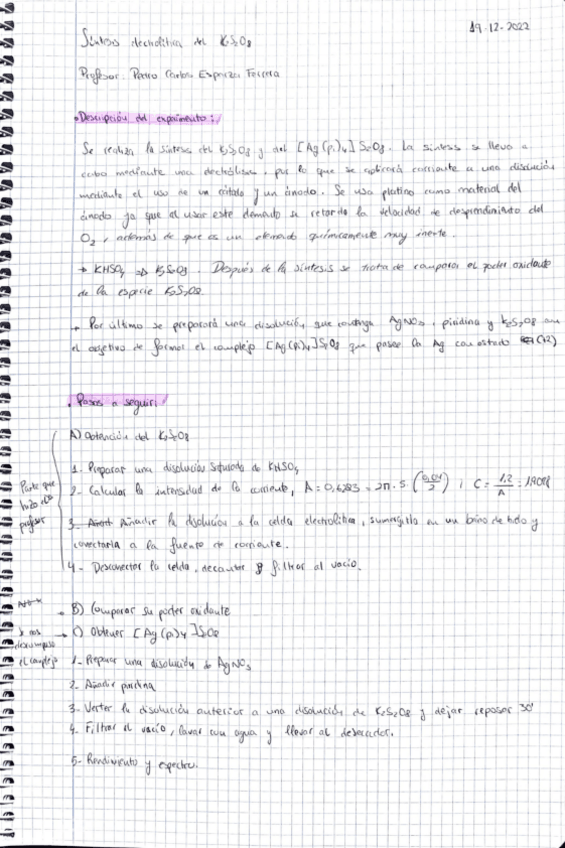 19-12-2022
Síntesis electrolítica del K₂S₂O₈
Profesor: Pedro Carlos Esparza Ferrera
• Descripción del experimento:
Se realiza la síntesis del K₂S₂O₈ y del [Ag(pi)₄]S₂O₈. La síntesis se lleva a
cabo mediante una electrólisis, por lo que se aplicará corriente a una disolución
mediante el uso de un cátodo y un ánodo. Se usa platino como material del
ánodo ya que al usar este elemento se retarda la velocidad de desprendimiento del
O₂, además de que es un elemento químicamente muy inerte.
→ KHSO₄ ⇒ K₂S₂O₈. Después de la síntesis se trata de comparar el poder oxidante
de la especie K₂S₂O₈.
→ Por último se preparará una disolución que contenga AgNO₃, piridina y K₂S₂O₈ con
el objetivo de formar el complejo [Ag(pi)₄]S₂O₈ que posee la Ag con estado (+2)
• Pasos a seguir:
A) Obtención del K₂S₂O₈
1. Preparar una disolución saturada de KHSO₄
2- Calcular la intensidad de la corriente, A = 0,6283 = 2π · 5 · (0,04/2) ; C = 1,2/A = 1,9098
3- Añadir la disolución a la celda electrolítica, sumergirla en un baño de hielo y
conectarla a la fuente de corriente.
4- Desconectar la celda, decantar y filtrar al vacío.
Parte que
hizo el
profesor
→ B) Comparar su poder oxidante
→ C) Obtener [Ag(pi)₄]S₂O₈
Se nos
descompuso
el complejo
1- Preparar una disolución de AgNO₃
2- Añadir piridina
3- Verter la disolución anterior a una disolución de K₂S₂O₈ y dejar reposar 30'
4- Filtrar al vacío, lavar con agua y llevar al desecador.
5- Rendimiento y espectro.